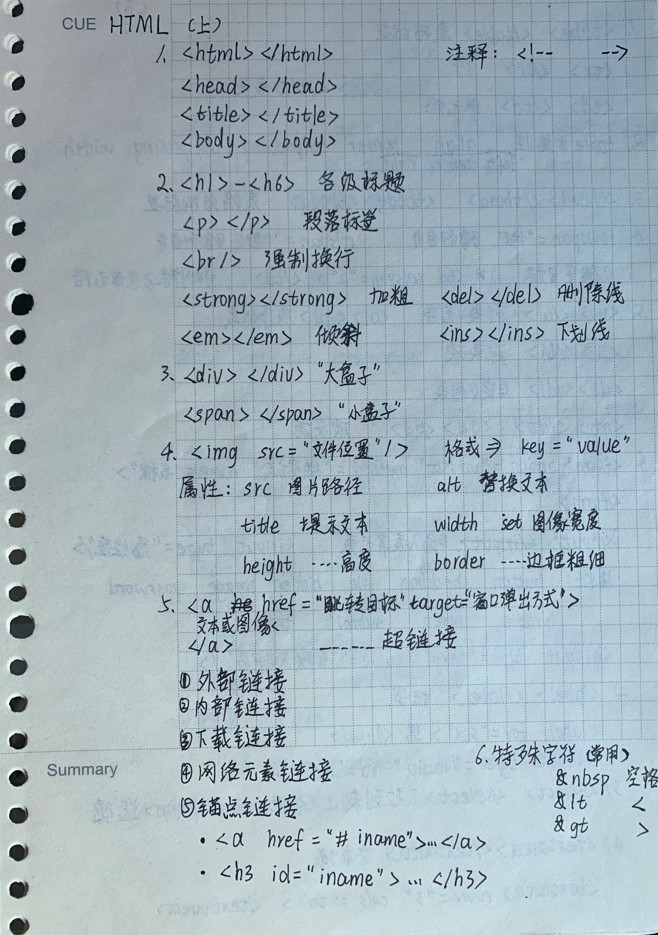 CUE HTML (上)
1、<html></html> 注释：<!-- -->
<head></head>
<title></title>
<body></body>
2、<h1>-<h6> 各级标题
<p></p> 段落标签
<br/> 强制换行
<strong></strong> 加粗 <del></del> 删除线
<em></em> 倾斜 <ins></ins> 下划线
3、<div></div> "大盒子"
<span></span> "小盒子"
4、<img src="文件位置"/> 格式⇒ key="value"
属性：src 图片路径 alt 替换文本
title 提示文本 width set 图像宽度
height ....高度 border ----边框粗细
5、<a href="跳转目标" target="窗口弹出方式">
文本或图像<
</a> ------ 超链接
① 外部链接
② 内部链接
③ 下载链接
6、特殊字符 (常用)
Summary ④ 网络元素链接 &nbsp 空格
⑤ 锚点链接 &lt <
&gt >
· <a href="# iname">...</a>
· <h3 id="iname">... </h3>